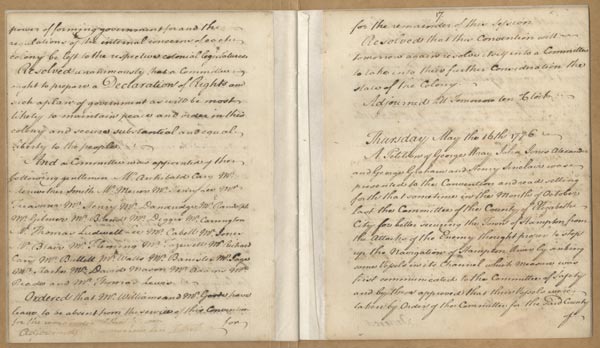 power of forming government for and the
regulations of the internal concerns of each
colony be left to the respective colonial legislatures
Resolved unanimously that a Committee
ought to prepare a Declaration of Rights and
such a plan of government as will be most
likely to maintain peace and order in this
colony and secure substantial and equal
liberty to the people
And a Committee was appointed of the
following gentlemen Mr. Archibald Cary Mr.
Meriwether Smith Mr. Mercer Mr. Henry Lee Mr.
Treasurer Mr. Henry Mr. Dandridge Mr. Randolph
Mr. Gilmer Mr. Bland Mr. Digges Mr. Carrington
Mr. Thomas Ludwell Lee Mr. Cabell Mr. Jones
Mr. Blair Mr. Fleming Mr. Tazewell Mr. Richard
Cary Mr. Bullitt Mr. Watts Mr. Banister Mr. Page
Mr. Starke Mr. David Mason Mr. Adams Mr.
Read and Mr. Thomas Lewis
Ordered that Mr. Williams and Mr. have
leave to be absent from the service of this Convention
for
7
for the remainder of this Session
Resolved that this Convention will
tomorrow again resolve itself into a Committee
to take into their further Consideration the
state of the Colony
Adjourned till Tomorrow ten Clock
Thursday May the 16th 1776
A Petition of George Wray John Jones Alexander
and George Graham and Henry Sinclair was
presented to the Convention and read setting
forth that sometime in the Month of October
last the Committee of the County of Elizabeth
City for better securing the Town of Hampton from
the Attacks of the Enemy thought proper to stop
up the Navigation of Hampton River by sinking
some Vessels in its Channel which measure was
first communicated to the Committee of Safety
and by them approved that the Vessels were
taken by Order of the Committee for the said County
of